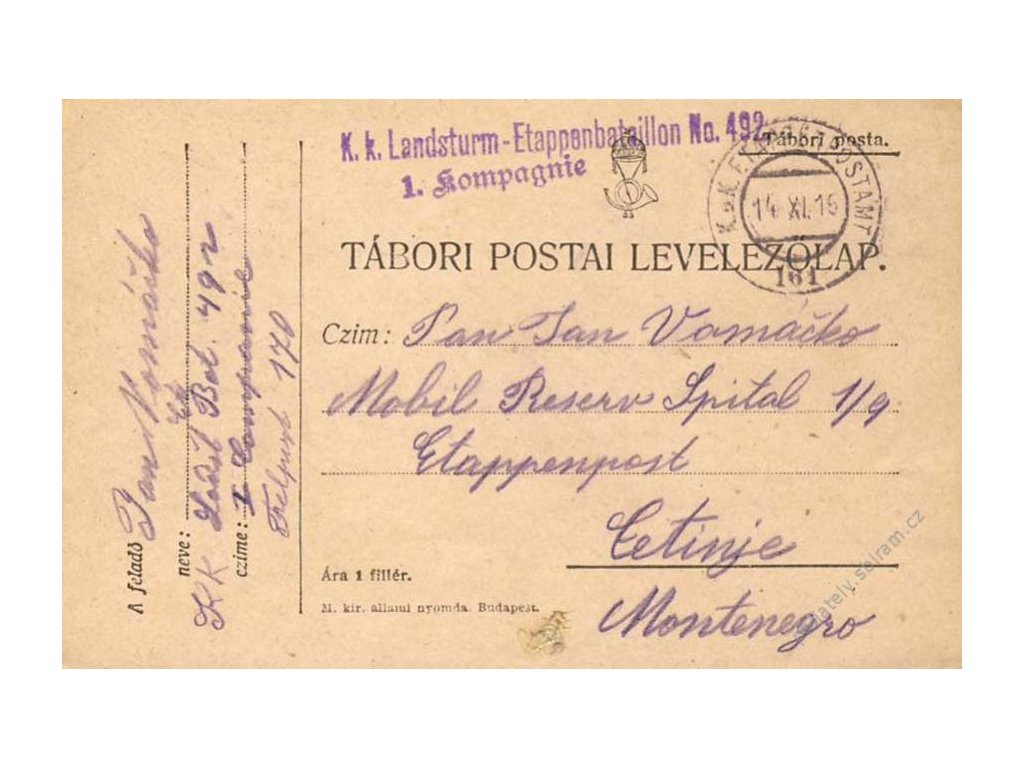 K. k. Landsturm-Etappenbataillon No. 492
1. Kompagnie
Tábori posta.
K.u.K. POSTAMT
14 XI.16
161
TÁBORI POSTAI LEVELEZŐLAP.
Czim: Pan Jan Vomáčko
Mobil Reserv Spital 1/9
Etappenpost
Cetinje
Montenegro
Ára 1 fillér.
M. kir. állami nyomda. Budapest.
A feladó Jan Vomáčko
neve: KK Bat. 492
czime: I Companie
170
sbiram.cz